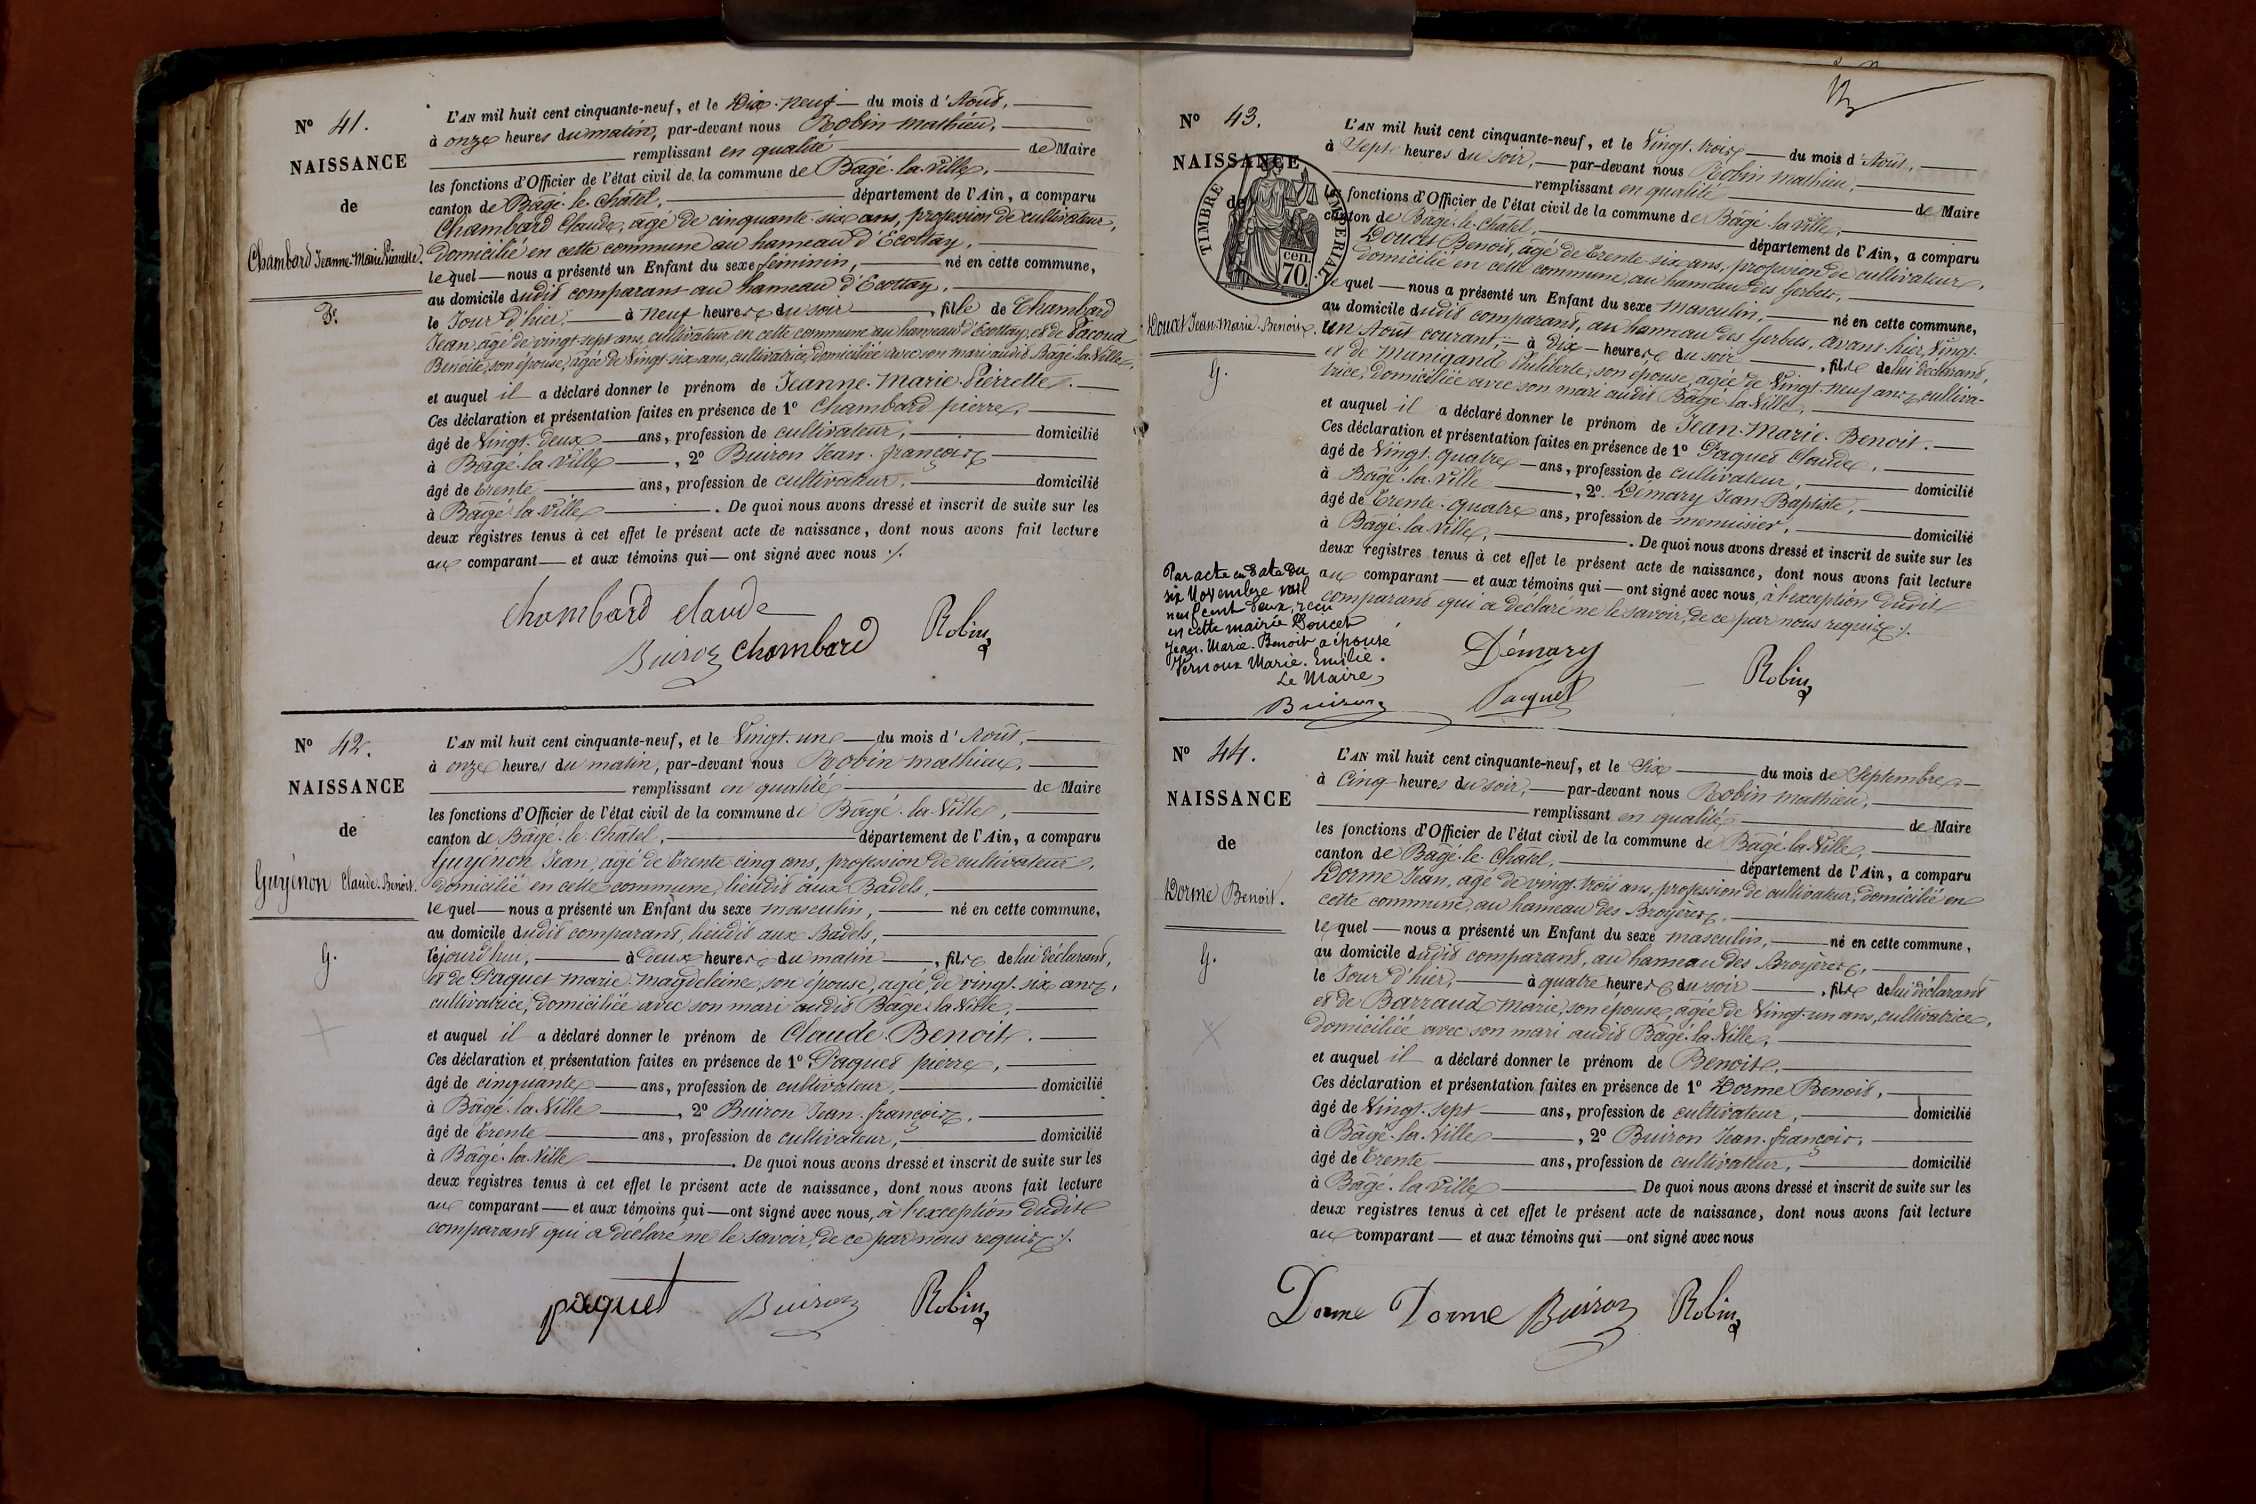 N° 41.
NAISSANCE
de
Chambard Jeanne-Marie Pierrette.
F.
L'AN mil huit cent cinquante-neuf, et le Dix-neuf du mois d'Août,
à onze heures du matin, par-devant nous Robin Mathieu,
remplissant en qualité de Maire
les fonctions d'Officier de l'état civil de la commune de Bâgé-la-Ville,
canton de Bâgé-le-Châtel, département de l'Ain, a comparu
Chambard Claude, âgé de cinquante-six ans, profession de cultivateur,
domicilié en cette commune au hameau d'Ecottay,
lequel nous a présenté un Enfant du sexe féminin, né en cette commune,
au domicile dudit comparant au hameau d'Ecottay,
le Jour d'hier, à neuf heures du soir, fille de Chambard
Jean, âgé de vingt sept ans, cultivateur en cette commune au hameau d'Ecottay, et de Pacoud
Benoite, son épouse, âgée de Vingt-six ans, cultivatrice, domiciliée avec son mari audit Bâgé-la-Ville,
et auquel il a déclaré donner le prénom de Jeanne-Marie-Pierrette.
Ces déclaration et présentation faites en présence de 1° Chambard pierre,
âgé de Vingt-deux ans, profession de cultivateur, domicilié
à Bâgé-la-Ville, 2° Buiron Jean-françois
âgé de trente ans, profession de cultivateur, domicilié
à Bâgé-la-Ville. De quoi nous avons dressé et inscrit de suite sur les
deux registres tenus à cet effet le présent acte de naissance, dont nous avons fait lecture
au comparant et aux témoins qui ont signé avec nous ./.
Chambard claude
Buiron Chambard Robin
N° 42.
NAISSANCE
de
Guyénon Claude-Benoit.
G.
L'AN mil huit cent cinquante-neuf, et le Vingt-un du mois d'Août,
à onze heures du matin, par-devant nous Robin Mathieu,
remplissant en qualité de Maire
les fonctions d'Officier de l'état civil de la commune de Bâgé-la-Ville,
canton de Bâgé-le-Châtel, département de l'Ain, a comparu
Guyénon Jean, âgé de trente cinq ans, profession de cultivateur,
domicilié en cette commune, lieudit aux Badels,
lequel nous a présenté un Enfant du sexe masculin, né en cette commune,
au domicile dudit comparant, lieudit aux Badels,
cejourd'hui, à deux heures du matin, fils de lui déclarant,
et de Paquet marie-magdeleine, son épouse, âgée de vingt-six ans,
cultivatrice, domiciliée avec son mari audit Bâgé-la-Ville,
et auquel il a déclaré donner le prénom de Claude-Benoit.
Ces déclaration et présentation faites en présence de 1° Paquet pierre,
âgé de cinquante ans, profession de cultivateur, domicilié
à Bâgé-la-Ville, 2° Buiron Jean-françois,
âgé de trente ans, profession de cultivateur, domicilié
à Bâgé-la-Ville. De quoi nous avons dressé et inscrit de suite sur les
deux registres tenus à cet effet le présent acte de naissance, dont nous avons fait lecture
au comparant et aux témoins qui ont signé avec nous, à l'exception dudit
comparant qui a déclaré ne le savoir, de ce par nous requis ./.
paquet Buiron Robin
N° 43.
NAISSANCE
de
TIMBRE IMPERIAL
cen.
70.
Doucet Jean-Marie-Benoit.
G.
L'AN mil huit cent cinquante-neuf, et le Vingt-trois du mois d'Août,
à Sept heures du soir, par-devant nous Robin mathieu,
remplissant en qualité de Maire
les fonctions d'Officier de l'état civil de la commune de Bâgé-la-Ville,
canton de Bâgé-le-Châtel, département de l'Ain, a comparu
Doucet Benoit, âgé de trente-six ans, profession de cultivateur,
domicilié en cette commune, au hameau des Gerbets,
lequel nous a présenté un Enfant du sexe masculin, né en cette commune,
au domicile dudit comparant, au hameau des Gerbets, avant-hier, Vingt-
un Août courant, à dix heures du soir, fils de lui déclarant,
et de Munigand Philiberte, son épouse, âgée de Vingt-neuf ans, cultiva-
trice, domiciliée avec son mari audit Bâgé-la-Ville,
et auquel il a déclaré donner le prénom de Jean-Marie-Benoit.
Ces déclaration et présentation faites en présence de 1° Paquet Claude,
âgé de Vingt-quatre ans, profession de cultivateur, domicilié
à Bâgé-la-Ville, 2° Démary Jean-Baptiste,
âgé de trente-quatre ans, profession de menuisier, domicilié
à Bâgé-la-Ville. De quoi nous avons dressé et inscrit de suite sur les
deux registres tenus à cet effet le présent acte de naissance, dont nous avons fait lecture
au comparant et aux témoins qui ont signé avec nous, à l'exception dudit
comparant qui a déclaré ne le savoir, de ce par nous requis ./.
Par acte en date du
six Novembre mil
neuf cent deux, reçu
en cette mairie Doucet
Jean-Marie-Benoit a épousé
Vernoux Marie-Emilie.
Le Maire,
Buiron
Démary
Paquet
Robin
N° 44.
NAISSANCE
de
Dorme Benoit.
G.
L'AN mil huit cent cinquante-neuf, et le Six du mois de Septembre
à Cinq heures du soir, par-devant nous Robin mathieu,
remplissant en qualité de Maire
les fonctions d'Officier de l'état civil de la commune de Bâgé-la-Ville,
canton de Bâgé-le-Châtel, département de l'Ain, a comparu
Dorme Jean, âgé de vingt-trois ans, profession de cultivateur, domicilié en
cette commune, au hameau des Broyères,
lequel nous a présenté un Enfant du sexe masculin, né en cette commune,
au domicile dudit comparant, au hameau des Broyères,
le Jour d'hier, à quatre heures du soir, fils de lui déclarant
et de Barraud Marie, son épouse, âgée de Vingt-un ans, cultivatrice,
domiciliée avec son mari audit Bâgé-la-Ville,
et auquel il a déclaré donner le prénom de Benoit.
Ces déclaration et présentation faites en présence de 1° Dorme Benoit,
âgé de Vingt-sept ans, profession de cultivateur, domicilié
à Bâgé-la-Ville, 2° Buiron Jean-françois,
âgé de trente ans, profession de cultivateur, domicilié
à Bâgé-la-Ville De quoi nous avons dressé et inscrit de suite sur les
deux registres tenus à cet effet le présent acte de naissance, dont nous avons fait lecture
au comparant et aux témoins qui ont signé avec nous
Dorme Dorme Buiron Robin